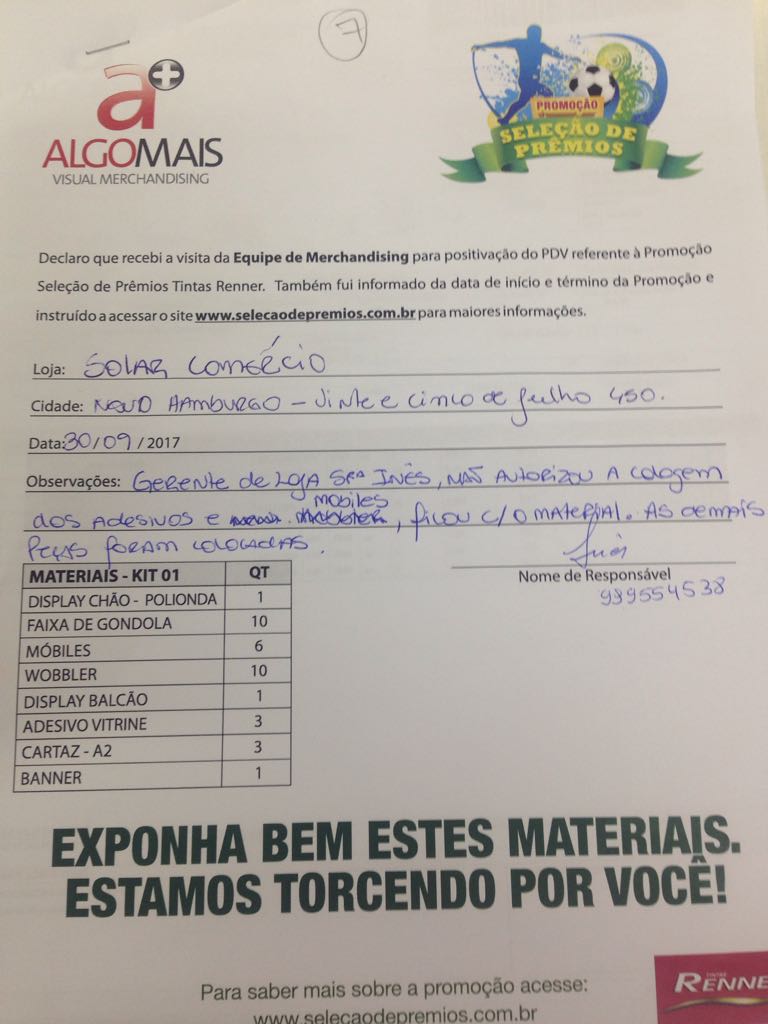 7
a+
ALGOMAIS
VISUAL MERCHANDISING
PROMOÇÃO
SELEÇÃO DE
PRÊMIOS
Declaro que recebi a visita da Equipe de Merchandising para positivação do PDV referente à Promoção
Seleção de Prêmios Tintas Renner. Também fui informado da data de início e término da Promoção e
instruído a acessar o site www.selecaodepremios.com.br para maiores informações.
Loja: SOLAR COMÉRCIO
Cidade: NOVO HAMBURGO - Vinte e cinco de julho 450.
Data: 30/09/2017
Observações: Gerente de Loja Srª INÊS, NÃO AUTORIZOU A colagem
mobiles
dos ADESIVOS e , ficou c/ o MATERIAL. AS demais
Peças foram colocadas.
Inês
Nome de Responsável
989554538
MATERIAIS - KIT 01 QT
DISPLAY CHÃO - POLIONDA 1
FAIXA DE GONDOLA 10
MÓBILES 6
WOBBLER 10
DISPLAY BALCÃO 1
ADESIVO VITRINE 3
CARTAZ - A2 3
BANNER 1
EXPONHA BEM ESTES MATERIAIS.
ESTAMOS TORCENDO POR VOCÊ!
Para saber mais sobre a promoção acesse:
www.selecaodepremios.com.br
TINTAS
RENNE